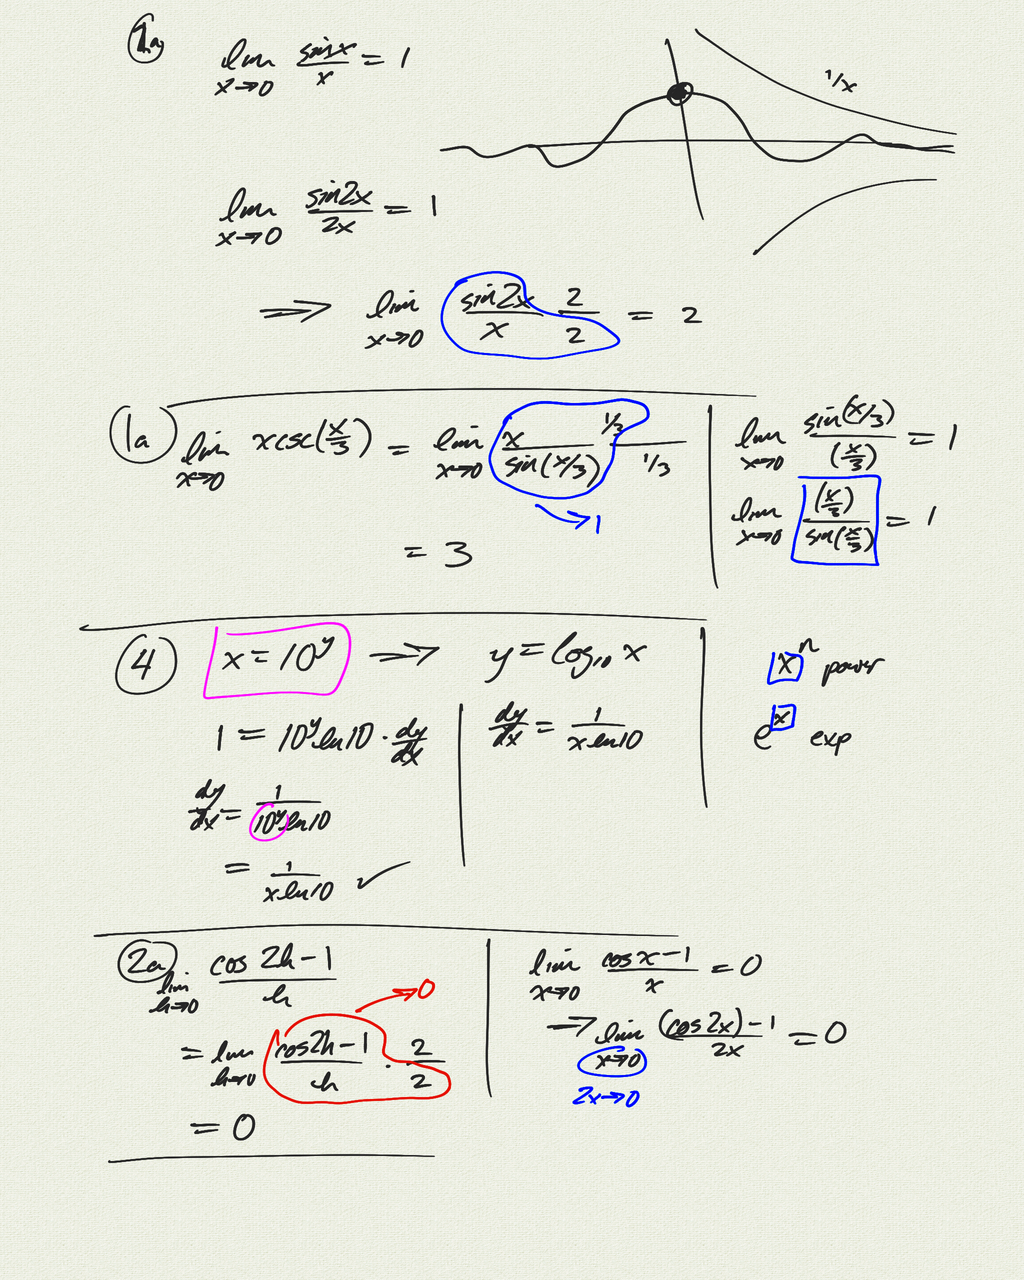 1a
lim x→0 sinx/x = 1
1/x
lim x→0 sin2x/2x = 1
⟹ lim x→0 sin2x/x 2/2 = 2
1a lim x→0 xcsc(x/3) = lim x→0 x/sin(x/3) 1/3/1/3
→1
= 3
lim x→0 sin(x/3)/(x/3) = 1
lim x→0 (x/3)/sin(x/3) = 1
4 x = 10^y ⟶ y = log₁₀ x
1 = 10^y ln10 · dy/dx
dy/dx = 1/(10^y ln10)
= 1/(x ln10) ✓
dy/dx = 1/(x ln10)
x^n power
e^x exp
2a lim h→0 cos 2h − 1/h
→0
= lim h→0 cos2h − 1/h · 2/2
= 0
lim x→0 cosx − 1/x = 0
→ lim x→0 (cos2x) − 1/2x = 0
2x→0